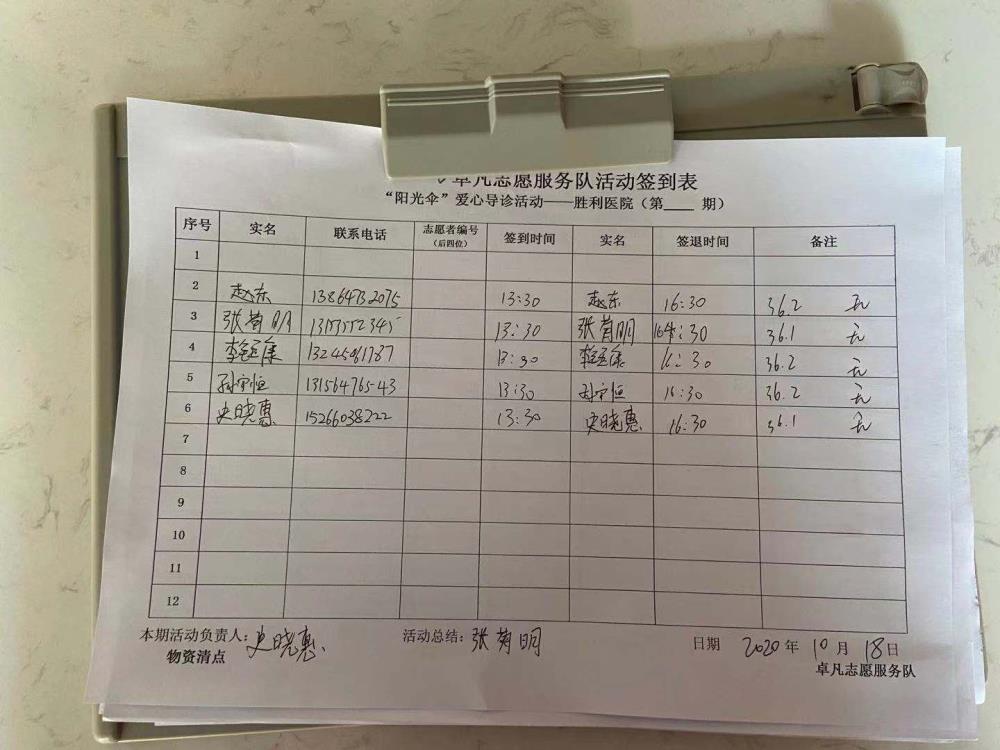 卓凡志愿服务队活动签到表
“阳光伞”爱心导诊活动——胜利医院（第____期）
序号 实名 联系电话 志愿者编号（后四位） 签到时间 实名 签退时间 备注
1
2 赵东 13864732075 13:30 赵东 16:30 36.2 无
3 张菊明 13:30 张菊明 16:30 36.1 无
4 13:30 16:30 36.2 无
5 孙守恒 13156476543 13:30 孙守恒 16:30 36.2 无
6 史晓惠 15266038222 13:30 史晓惠 16:30 36.1 无
7
8
9
10
11
12
本期活动负责人：史晓惠 活动总结：张菊明 日期 2020年10月18日
物资清点 卓凡志愿服务队